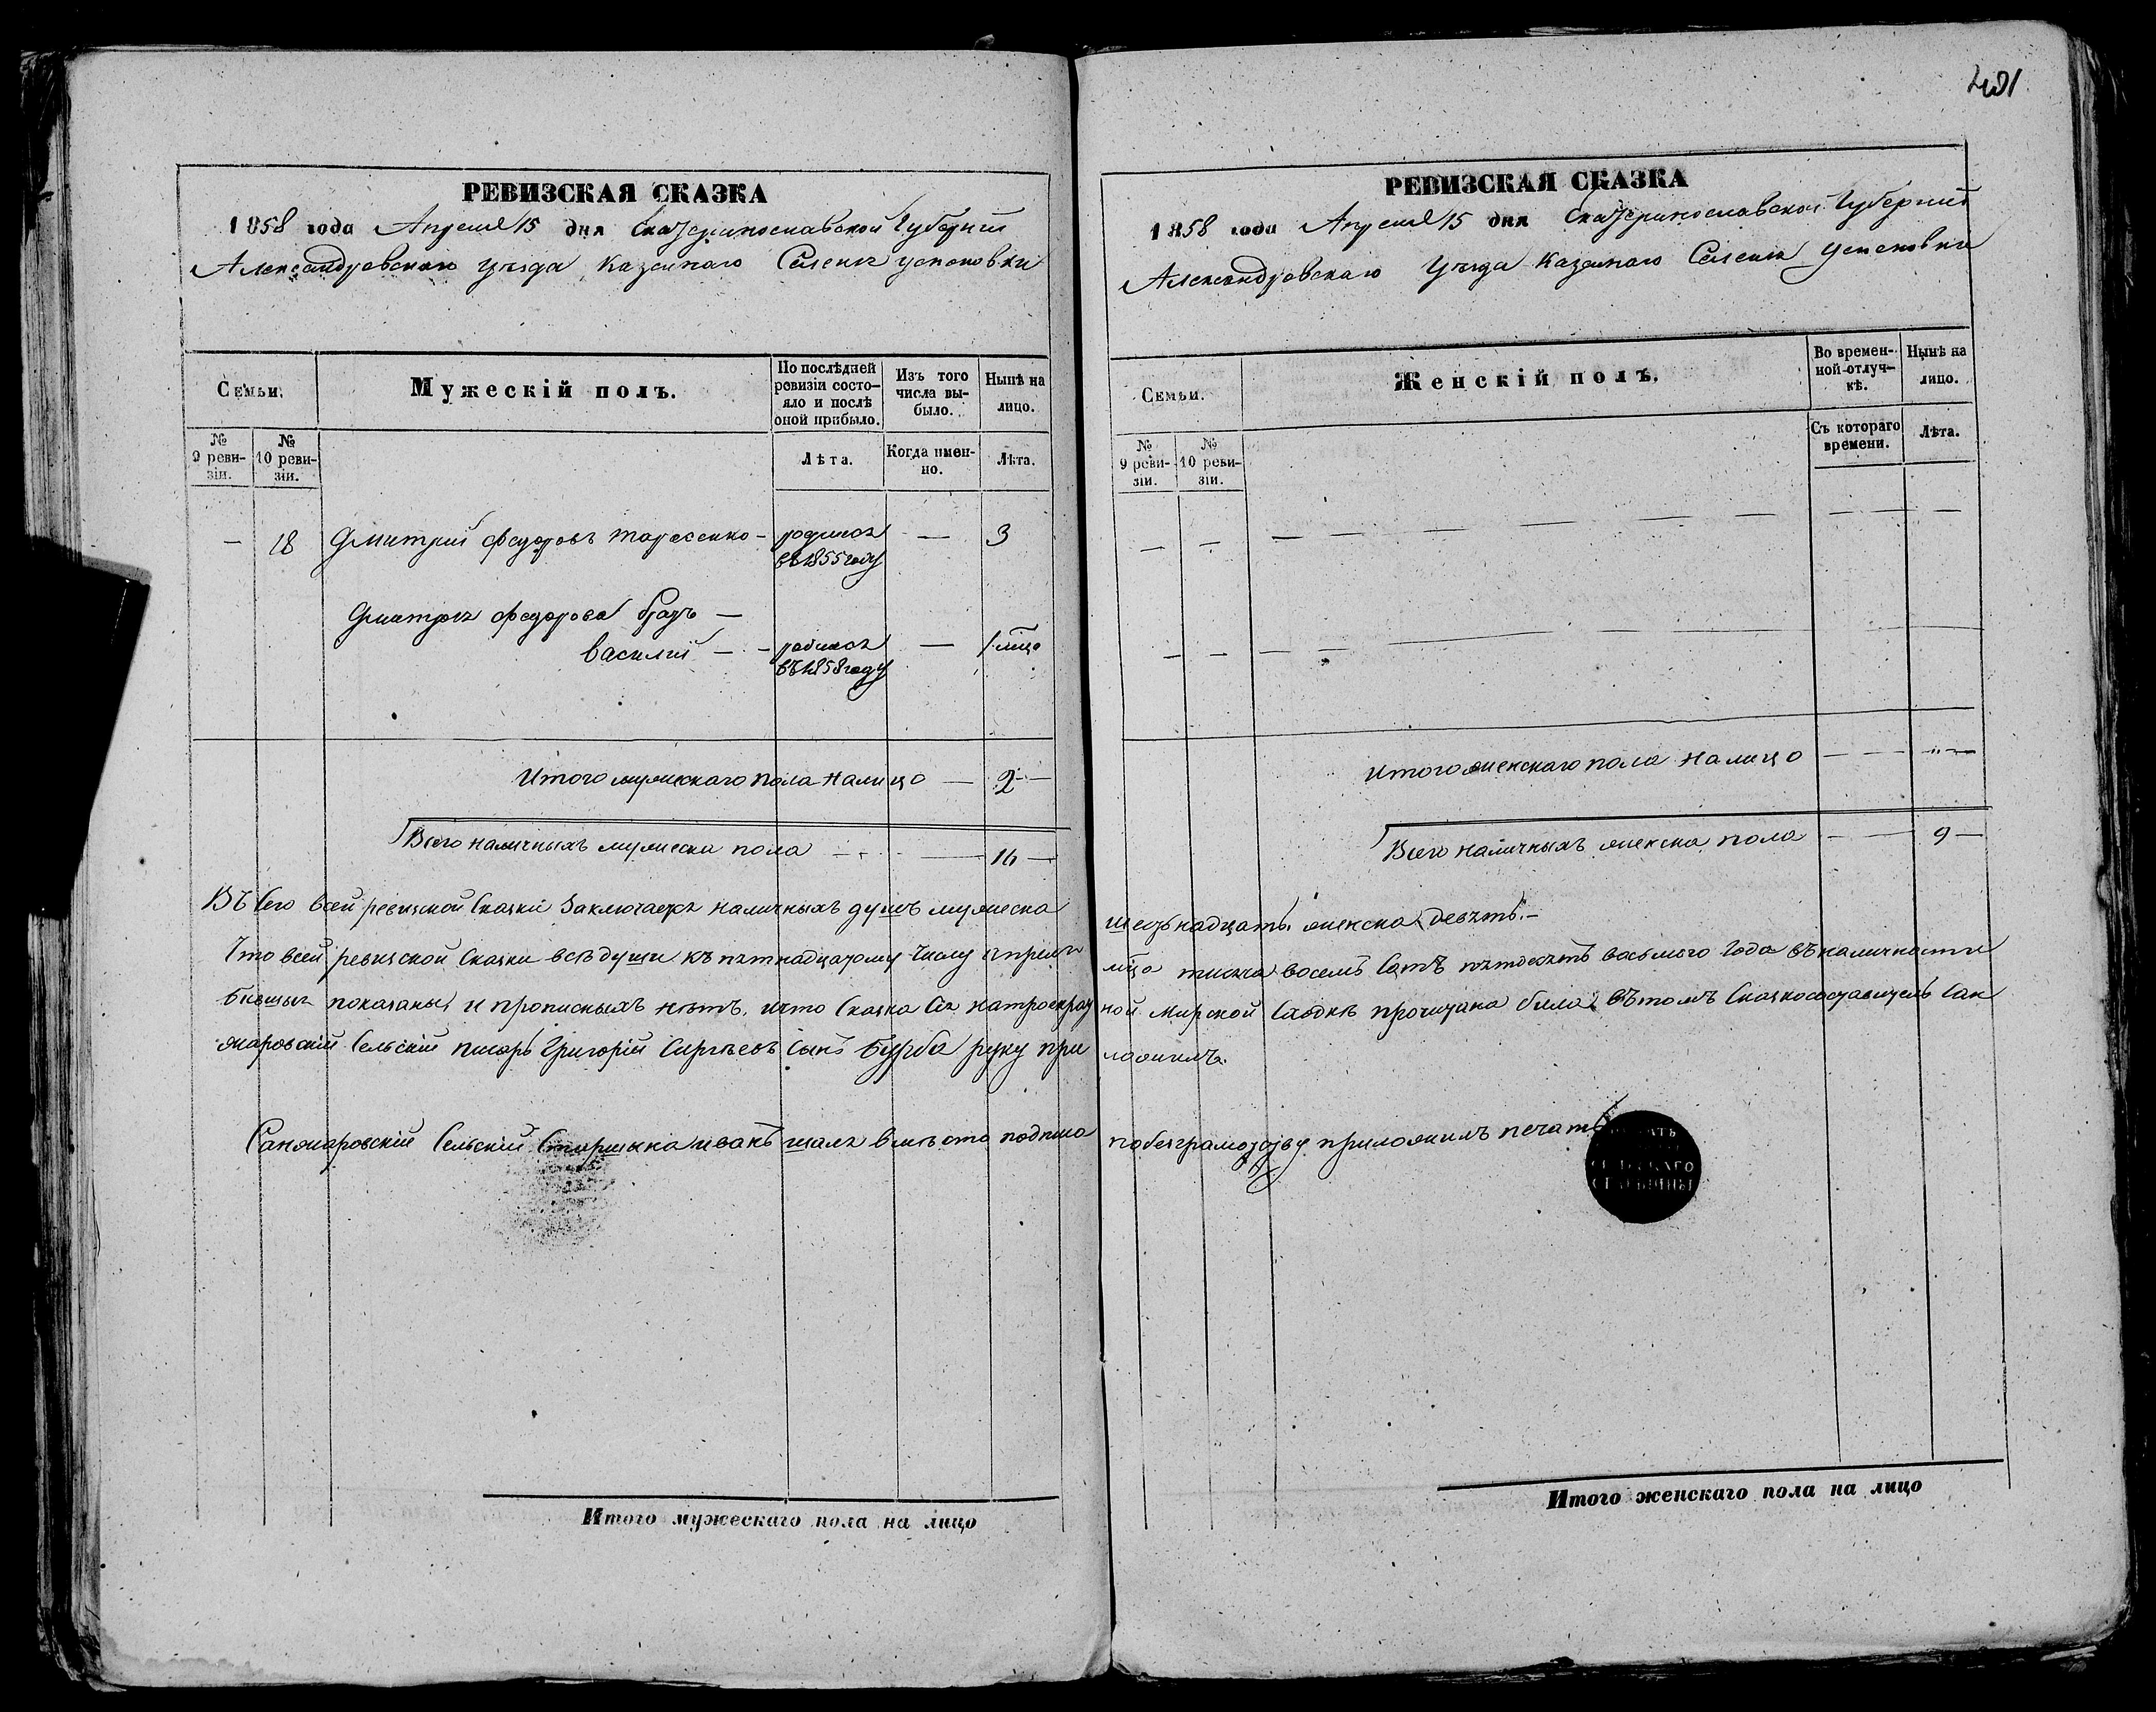 РЕВИЗСКАЯ СКАЗКА
1858 года Апреля 15 дня Екатеринославской Губернии
Александровскаго уѣзда Казеннаго Селенія Успеновки
Семьи.
Мужескій полъ.
По послѣдней ревизіи состояло и послѣ оной прибыло.
Изъ того числа выбыло.
Нынѣ на лицо.
№ 9 ревизіи.
№ 10 ревизіи.
Лѣта.
Когда именно.
Лѣта.
— 18 Дмитрий Федоровъ Тарасенко — родился — 3
въ 1855 году
Дмитрія Федорова братъ —
Василій — — родился — 1/ мца
въ 1858 году
Итого мужескаго пола налицо — 2 —
Всего наличныхъ мужеска пола — — 16 —
Итого мужескаго пола на лицо
401
РЕВИЗСКАЯ СКАЗКА
1858 года Апреля 15 дня Екатеринославской Губерніи
Александровскаго Уѣзда Казеннаго Селенія Успеновки
Семьи.
Женскій полъ.
Во временной отлучкѣ.
Нынѣ на лицо.
№ 9 ревизіи.
№ 10 ревизіи.
Съ котораго времени.
Лѣта.
Итого женскаго пола налицо — — " —
Всего наличныхъ женска пола — — 9 —
Въ сей ревизской Сказки Заключается наличныхъ душъ мужеска шестьнадцать женска девять. —
Что всей ревизской Сказки всѣ души къ пятнадцатому числу Апреля мца тысяча восемь сотъ пятдесятъ восьмого года въ наличности
бывшыя показаны, и прописныхъ нѣтъ, ичто Сказка Сія натроекратной Мирской Сходкѣ прочитана была, въ томъ Сказкосоставитель Сан
жаровскій Сельскій писарь Григорій Сиргѣевъ Сынъ Бурба руку приложилъ.
Санжаровскій Сельскій Старшына иванъ вмѣсто подписа побезграмотству приложилъ печать
СЕЛЬСКАГО
СТАРШИНЫ
Итого женскаго пола на лицо